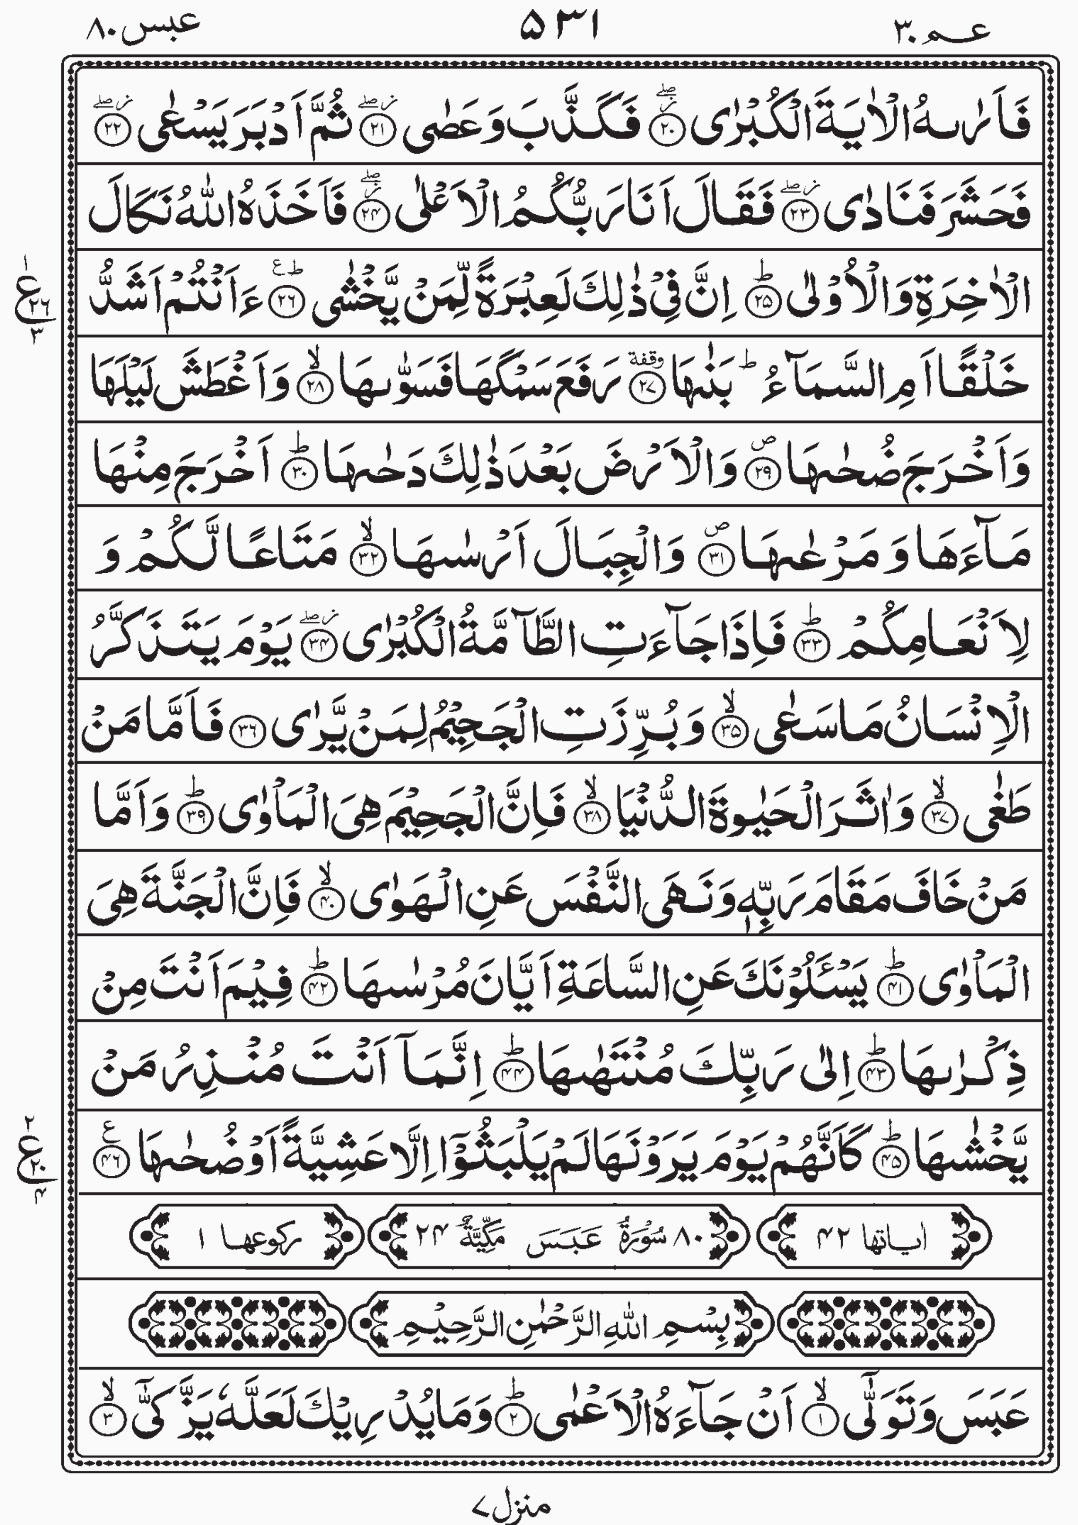 عبس ۸۰
۵۳۱
عـم ۳۰
فَاَرٰىهُ الْاٰيَةَ الْكُبْرٰى ۲۰ فَكَذَّبَ وَعَصٰى ۲۱ ثُمَّ اَدْبَرَ يَسْعٰى ۲۲
فَحَشَرَ فَنَادٰى ۲۳ فَقَالَ اَنَا رَبُّكُمُ الْاَعْلٰى ۲۴ فَاَخَذَهُ اللّٰهُ نَكَالَ
الْاٰخِرَةِ وَالْاُوْلٰى ؕ ۲۵ اِنَّ فِىْ ذٰلِكَ لَعِبْرَةً لِّمَنْ يَّخْشٰى ؕ ع ۲۶ ءَاَنْتُمْ اَشَدُّ
خَلْقًا اَمِ السَّمَآءُ ؕ بَنٰىهَا وقفة ۲۷ رَفَعَ سَمْكَهَا فَسَوّٰىهَا ۙ ۲۸ وَاَغْطَشَ لَيْلَهَا
وَاَخْرَجَ ضُحٰىهَا ص ۲۹ وَالْاَرْضَ بَعْدَ ذٰلِكَ دَحٰىهَا ؕ ۳۰ اَخْرَجَ مِنْهَا
مَآءَهَا وَ مَرْعٰىهَا ص ۳۱ وَالْجِبَالَ اَرْسٰىهَا ۙ ۳۲ مَتَاعًا لَّكُمْ وَ
لِاَنْعَامِكُمْ ؕ ۳۳ فَاِذَا جَآءَتِ الطَّآمَّةُ الْكُبْرٰى ۳۴ يَوْمَ يَتَذَكَّرُ
الْاِنْسَانُ مَا سَعٰى ۙ ۳۵ وَبُرِّزَتِ الْجَحِيْمُ لِمَنْ يَّرٰى ۳۶ فَاَمَّا مَنْ
طَغٰى ۙ ۳۷ وَاٰثَرَ الْحَيٰوةَ الدُّنْيَا ۙ ۳۸ فَاِنَّ الْجَحِيْمَ هِىَ الْمَاْوٰى ؕ ۳۹ وَاَمَّا
مَنْ خَافَ مَقَامَ رَبِّهٖ وَنَهَى النَّفْسَ عَنِ الْهَوٰى ۙ ۴۰ فَاِنَّ الْجَنَّةَ هِىَ
الْمَاْوٰى ؕ ۴۱ يَسْـَٔلُوْنَكَ عَنِ السَّاعَةِ اَيَّانَ مُرْسٰىهَا ؕ ۴۲ فِيْمَ اَنْتَ مِنْ
ذِكْرٰىهَا ؕ ۴۳ اِلٰى رَبِّكَ مُنْتَهٰىهَا ؕ ۴۴ اِنَّمَآ اَنْتَ مُنْذِرُ مَنْ
يَّخْشٰىهَا ؕ ۴۵ كَاَنَّهُمْ يَوْمَ يَرَوْنَهَا لَمْ يَلْبَثُوْٓا اِلَّا عَشِيَّةً اَوْ ضُحٰىهَا ع ۴۶
اٰياتها ۴۲ ۸۰ سُوْرَةُ عَبَسَ مَكِّيَّةٌ ۲۴ ركوعها ۱
بِسْمِ اللّٰهِ الرَّحْمٰنِ الرَّحِيْمِ
عَبَسَ وَتَوَلّٰٓى ۙ ۱ اَنْ جَآءَهُ الْاَعْمٰى ؕ ۲ وَمَا يُدْرِيْكَ لَعَلَّهٗ يَزَّكّٰٓى ۙ ۳
۱
ع ۲۶
۳
۲
ع ۲۰
۴
منزل ۷